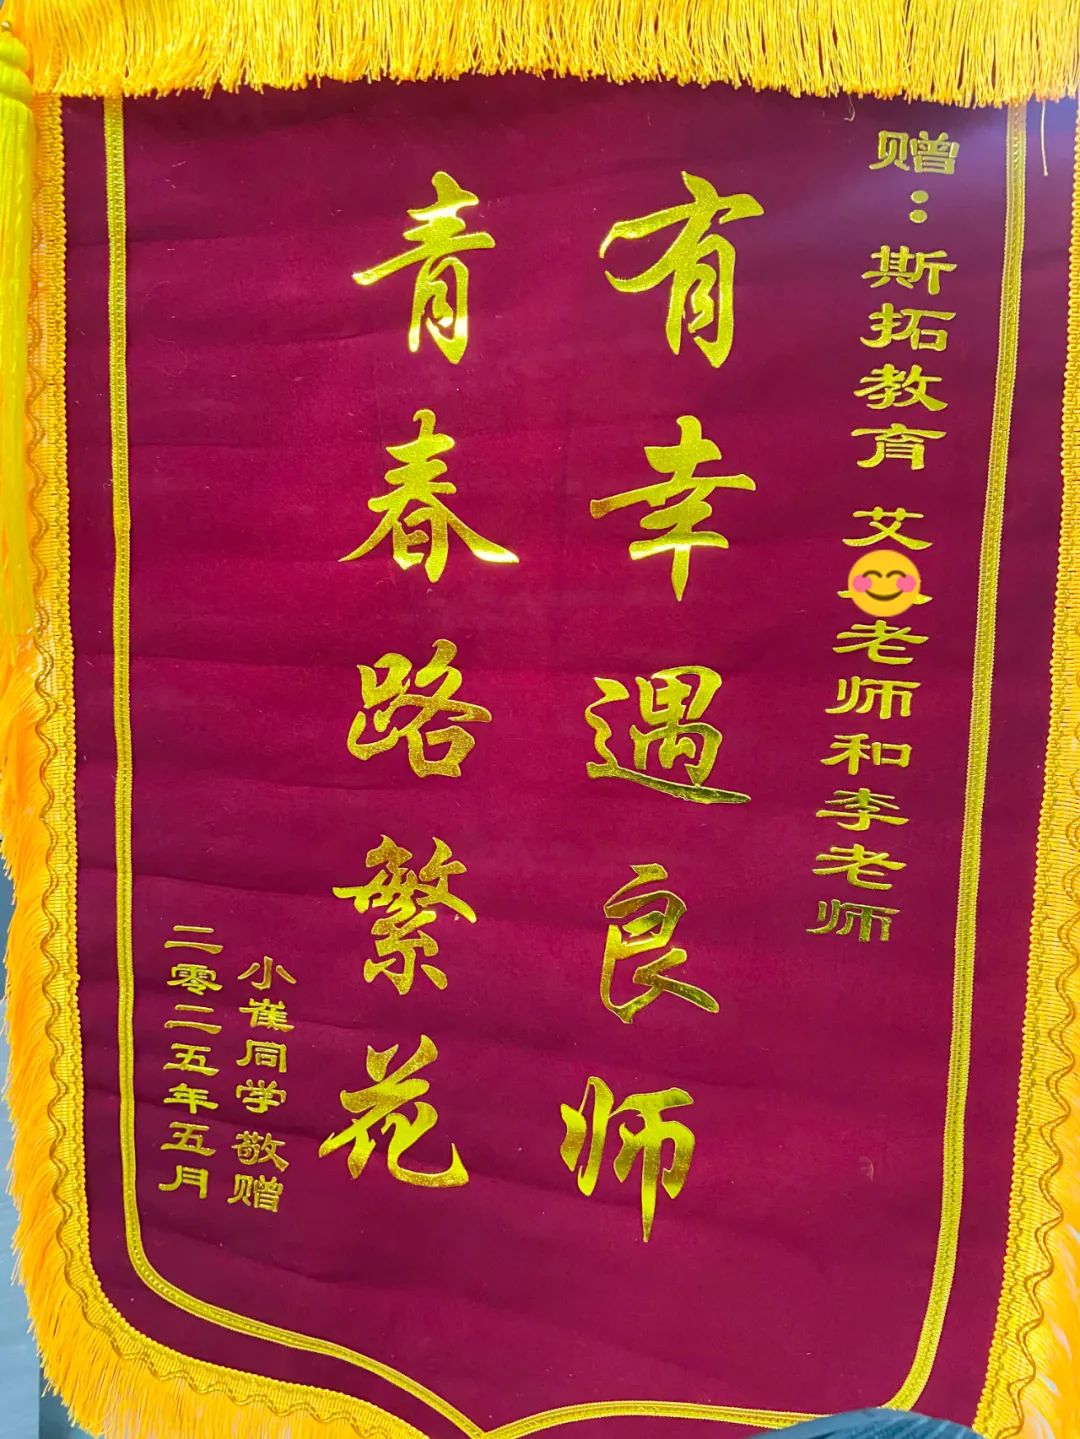 赠：斯拓教育 艾老师和李老师
有幸遇良师
青春路繁花
小崔同学 敬赠
二零二五年五月